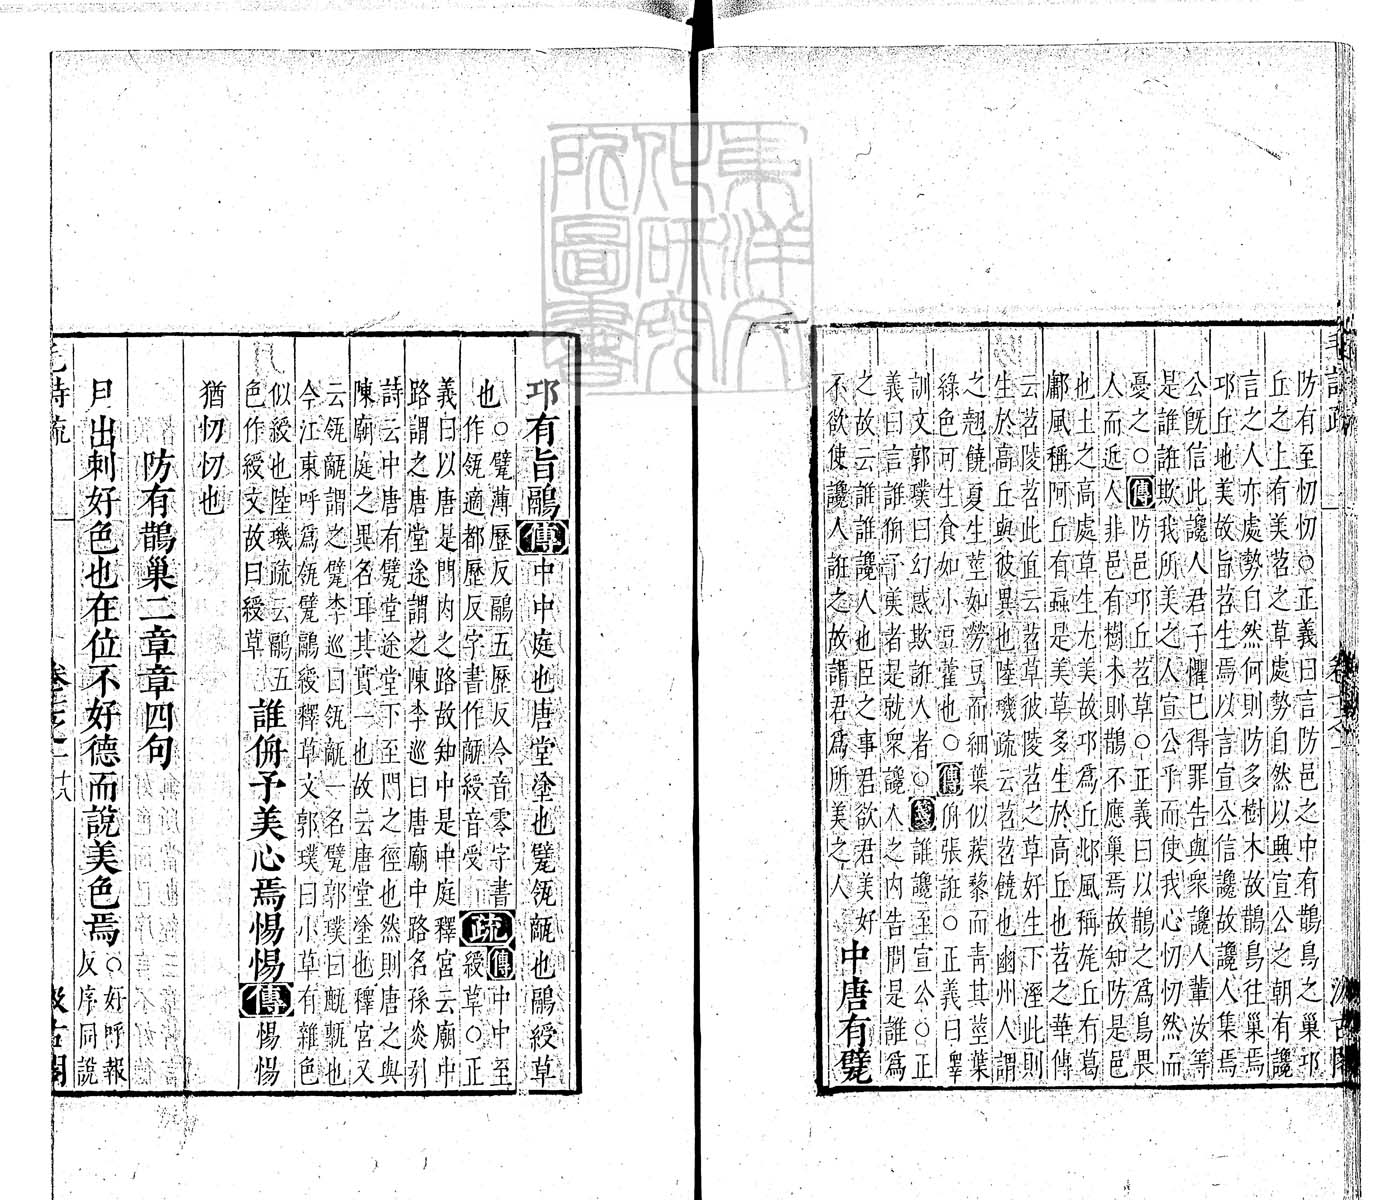 防有至忉忉○正義曰言防邑之中有鵲鳥之巢邛
丘之上有美苕之草處勢自然以興宣公之朝有讒
言之人亦處勢自然何則防多樹木故鵲鳥往巢焉
邛丘地美故旨苕生焉以言宣公信讒故讒人集焉
公旣信此讒人君子懼巳得罪告與衆讒人輩汝等
是誰誑欺我所美之人宣公乎而使我心忉忉然而
憂之○傳防邑邛丘苕草○正義曰以鵲之爲鳥畏
人而近人非邑有樹木則鵲不應巢焉故知防是邑
也土之高處草生尤美故邛爲丘邶風稱旄丘有葛
鄘風稱阿丘有蝱是美草多生於高丘也苕之華傳
云苕陵苕此直云苕草彼陵苕之草好生下溼此則
生於高丘與彼異也陸璣疏云苕苕饒也幽州人謂
之翹饒夏生莖如勞豆而細葉似蒺藜而靑其莖葉
綠色可生食如小豆藿也○傳侜張誑○正義曰釋
訓文郭璞曰幻惑欺誑人者○箋誰讒至宣公○正
義曰言誰侜予美者是就衆讒人之內告問是誰爲
之故云誰誰讒人也臣之事君欲君美好
不欲使讒人誑之故謂君爲所美之人 中唐有甓
邛有旨鷊傳中中庭也唐堂塗也甓瓴甋也鷊綬草
也○甓薄歷反鷊五歷反令音零字書
作瓴適都歷反字書作甋綬音受 疏傳中中至
綬草○正
義曰以唐是門內之路故知中是中庭釋宮云廟中
路謂之唐堂途謂之陳李巡曰唐廟中路名孫炎引
詩云中唐有甓堂途堂下至門之徑也然則唐之與
陳廟庭之異名耳其實一也故云唐堂塗也釋宮又
云瓴甋謂之甓李巡曰瓴甋一名甓郭璞曰甋甎也
今江東呼爲瓴甓鷊綬釋草文郭璞曰小草有雜色
似綬也陸璣疏云鷊五
色作綬文故曰綬草 誰侜予美心焉惕惕傳惕惕
猶忉忉也
防有鵲巢二章章四句
月出刺好色也在位不好德而說美色焉○好呼報
反序同說
毛詩疏
卷七之一
十八
汲古閣